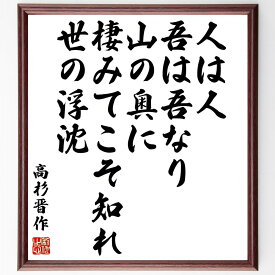 人は人
吾は吾なり
山の奥に
棲みてこそ知れ
世の浮沈
高杉晋作